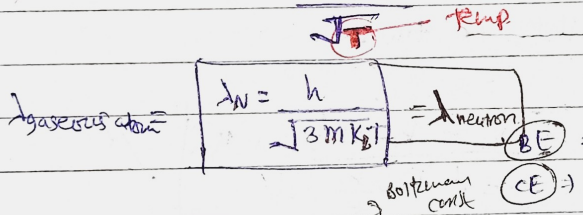 √T temp.
λgaseous atom = λN = h / √3mKBT = λneutron
BE
Boltzmann const
CE ⇒